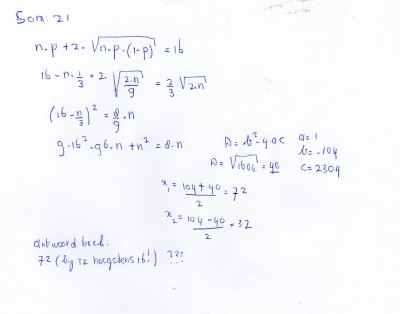 Som: 21
n.p + 2. √n.p.(1-p) = 16
16 - n. 1/3 = 2 √2.n/9 = 2/3 √2.n
(16 - n/3)² = 8/9 . n
9.16² - 96.n + n² = 8.n
D = b² - 4.a.c a = 1
D = √1600 = 40 b = -104
c = 2304
x₁ = 104 + 40 / 2 = 72
x₂ = 104 - 40 / 2 = 32
antwoord boek:
72 (by 32 hoogstens 16!) ???